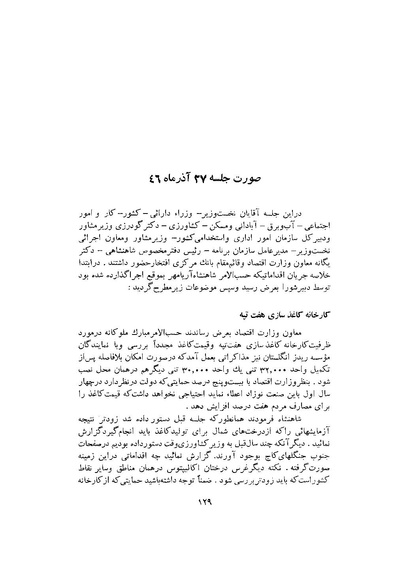 صورت جلسه ۲۷ آذرماه ٤٦
دراین جلسه آقایان نخست‌وزیر– وزراء دارائی – کشور– کار و امور
اجتماعی – آب‌وبرق – آبادانی ومسکن – کشاورزی – دکترگودرزی وزیرمشاور
ودبیرکل سازمان امور اداری واستخدامی‌کشور– وزیرمشاور ومعاون اجرائی
نخست‌وزیر– مدیرعامل سازمان برنامه – رئیس دفترمخصوص شاهنشاهی – دکتر
یگانه معاون وزارت اقتصاد وقائم‌مقام بانک مرکزی افتخارحضور داشتند . درابتدا
خلاصه جریان اقداماتیکه حسب‌الامر شاهنشاه‌آریامهر بموقع اجراگذارده شده بود
توسط دبیرشورا بعرض رسید وسپس موضوعات زیرمطرح‌گردید :
کارخانه کاغذ سازی هفت تپه
معاون وزارت اقتصاد بعرض رساندند حسب‌الامرمبارک ملوکانه درمورد
ظرفیت‌کارخانه کاغذسازی هفت‌تپه وقیمت‌کاغذ مجدداً بررسی وبا نمایندگان
مؤسسه ریدز انگلستان نیز مذاکراتی بعمل آمدکه درصورت امکان بلافاصله پس‌از
تکمیل واحد ۳۲,۰۰۰ تنی یک واحد ۳۰,۰۰۰ تنی دیگرهم درهمان محل نصب
شود . بنظروزارت اقتصاد با بیست‌وپنج درصد حمایتی‌که دولت درنظردارد درچهار
سال اول باین صنعت نوزاد اعطاء نماید احتیاجی نخواهد داشت‌که قیمت‌کاغذ را
برای مصارف مردم هفت درصد افزایش دهد .
شاهنشاه فرمودند همانطورکه جلسه قبل دستور داده شد زودتر نتیجه
آزمایشهائی راکه ازدرخت‌های شمال برای تولیدکاغذ باید انجام‌گیردگزارش
نمائید . دیگرآنکه چند سال‌قبل به وزیرکشاورزی‌وقت دستورداده بودیم درصفحات
جنوب جنگلهای‌کاج بوجود آورند. گزارش نمائید چه اقداماتی دراین زمینه
صورت‌گرفته . نکته دیگرغرس درختان اکالیپتوس درهمان مناطق وسایر نقاط
کشوراست‌که باید زودتربررسی شود . ضمناً توجه داشته‌باشید حمایتی‌که ازکارخانه
۱۲۹